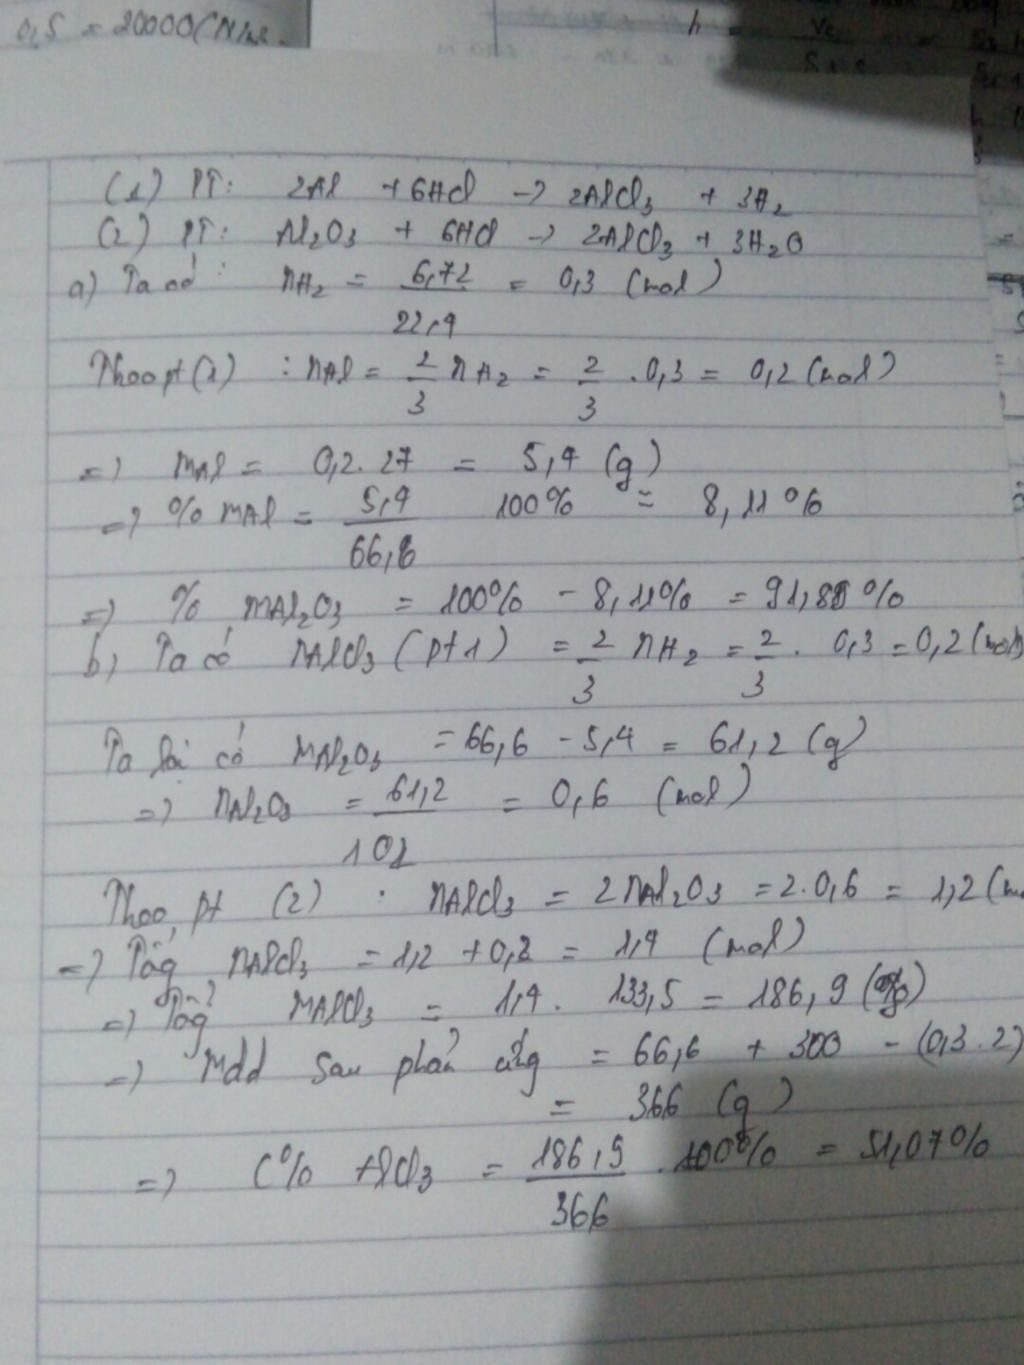 0,5 = 20000 (N/m2
h = Vc
(1) PT: 2Al + 6HCl -> 2AlCl3 + 3H2
(2) PT: Al2O3 + 6HCl -> 2AlCl3 + 3H2O
a) Ta có: nH2 = 6,72 / 22,4 = 0,3 (mol)
Theo pt (1) : nAl = 2/3 nH2 = 2/3 . 0,3 = 0,2 (mol)
=> mAl = 0,2. 27 = 5,4 (g)
=> % mAl = 5,4 / 66,6 100% = 8,11%
=> % mAl2O3 = 100% - 8,11% = 91,89%
b) Ta có nAlCl3 (pt1) = 2/3 nH2 = 2/3 . 0,3 = 0,2 (mol)
Ta lại có mAl2O3 = 66,6 - 5,4 = 61,2 (g)
=> nAl2O3 = 61,2 / 102 = 0,6 (mol)
Theo pt (2) : nAlCl3 = 2 nAl2O3 = 2. 0,6 = 1,2 (mo
=> Tổg nAlCl3 = 1,2 + 0,2 = 1,4 (mol)
=> Tổg mAlCl3 = 1,4 . 133,5 = 186,9 (g)
=> mdd sau phản ứg = 66,6 + 300 - (0,3 . 2)
= 366 (g)
=> C% AlCl3 = 186,9 / 366 . 100% = 51,07%